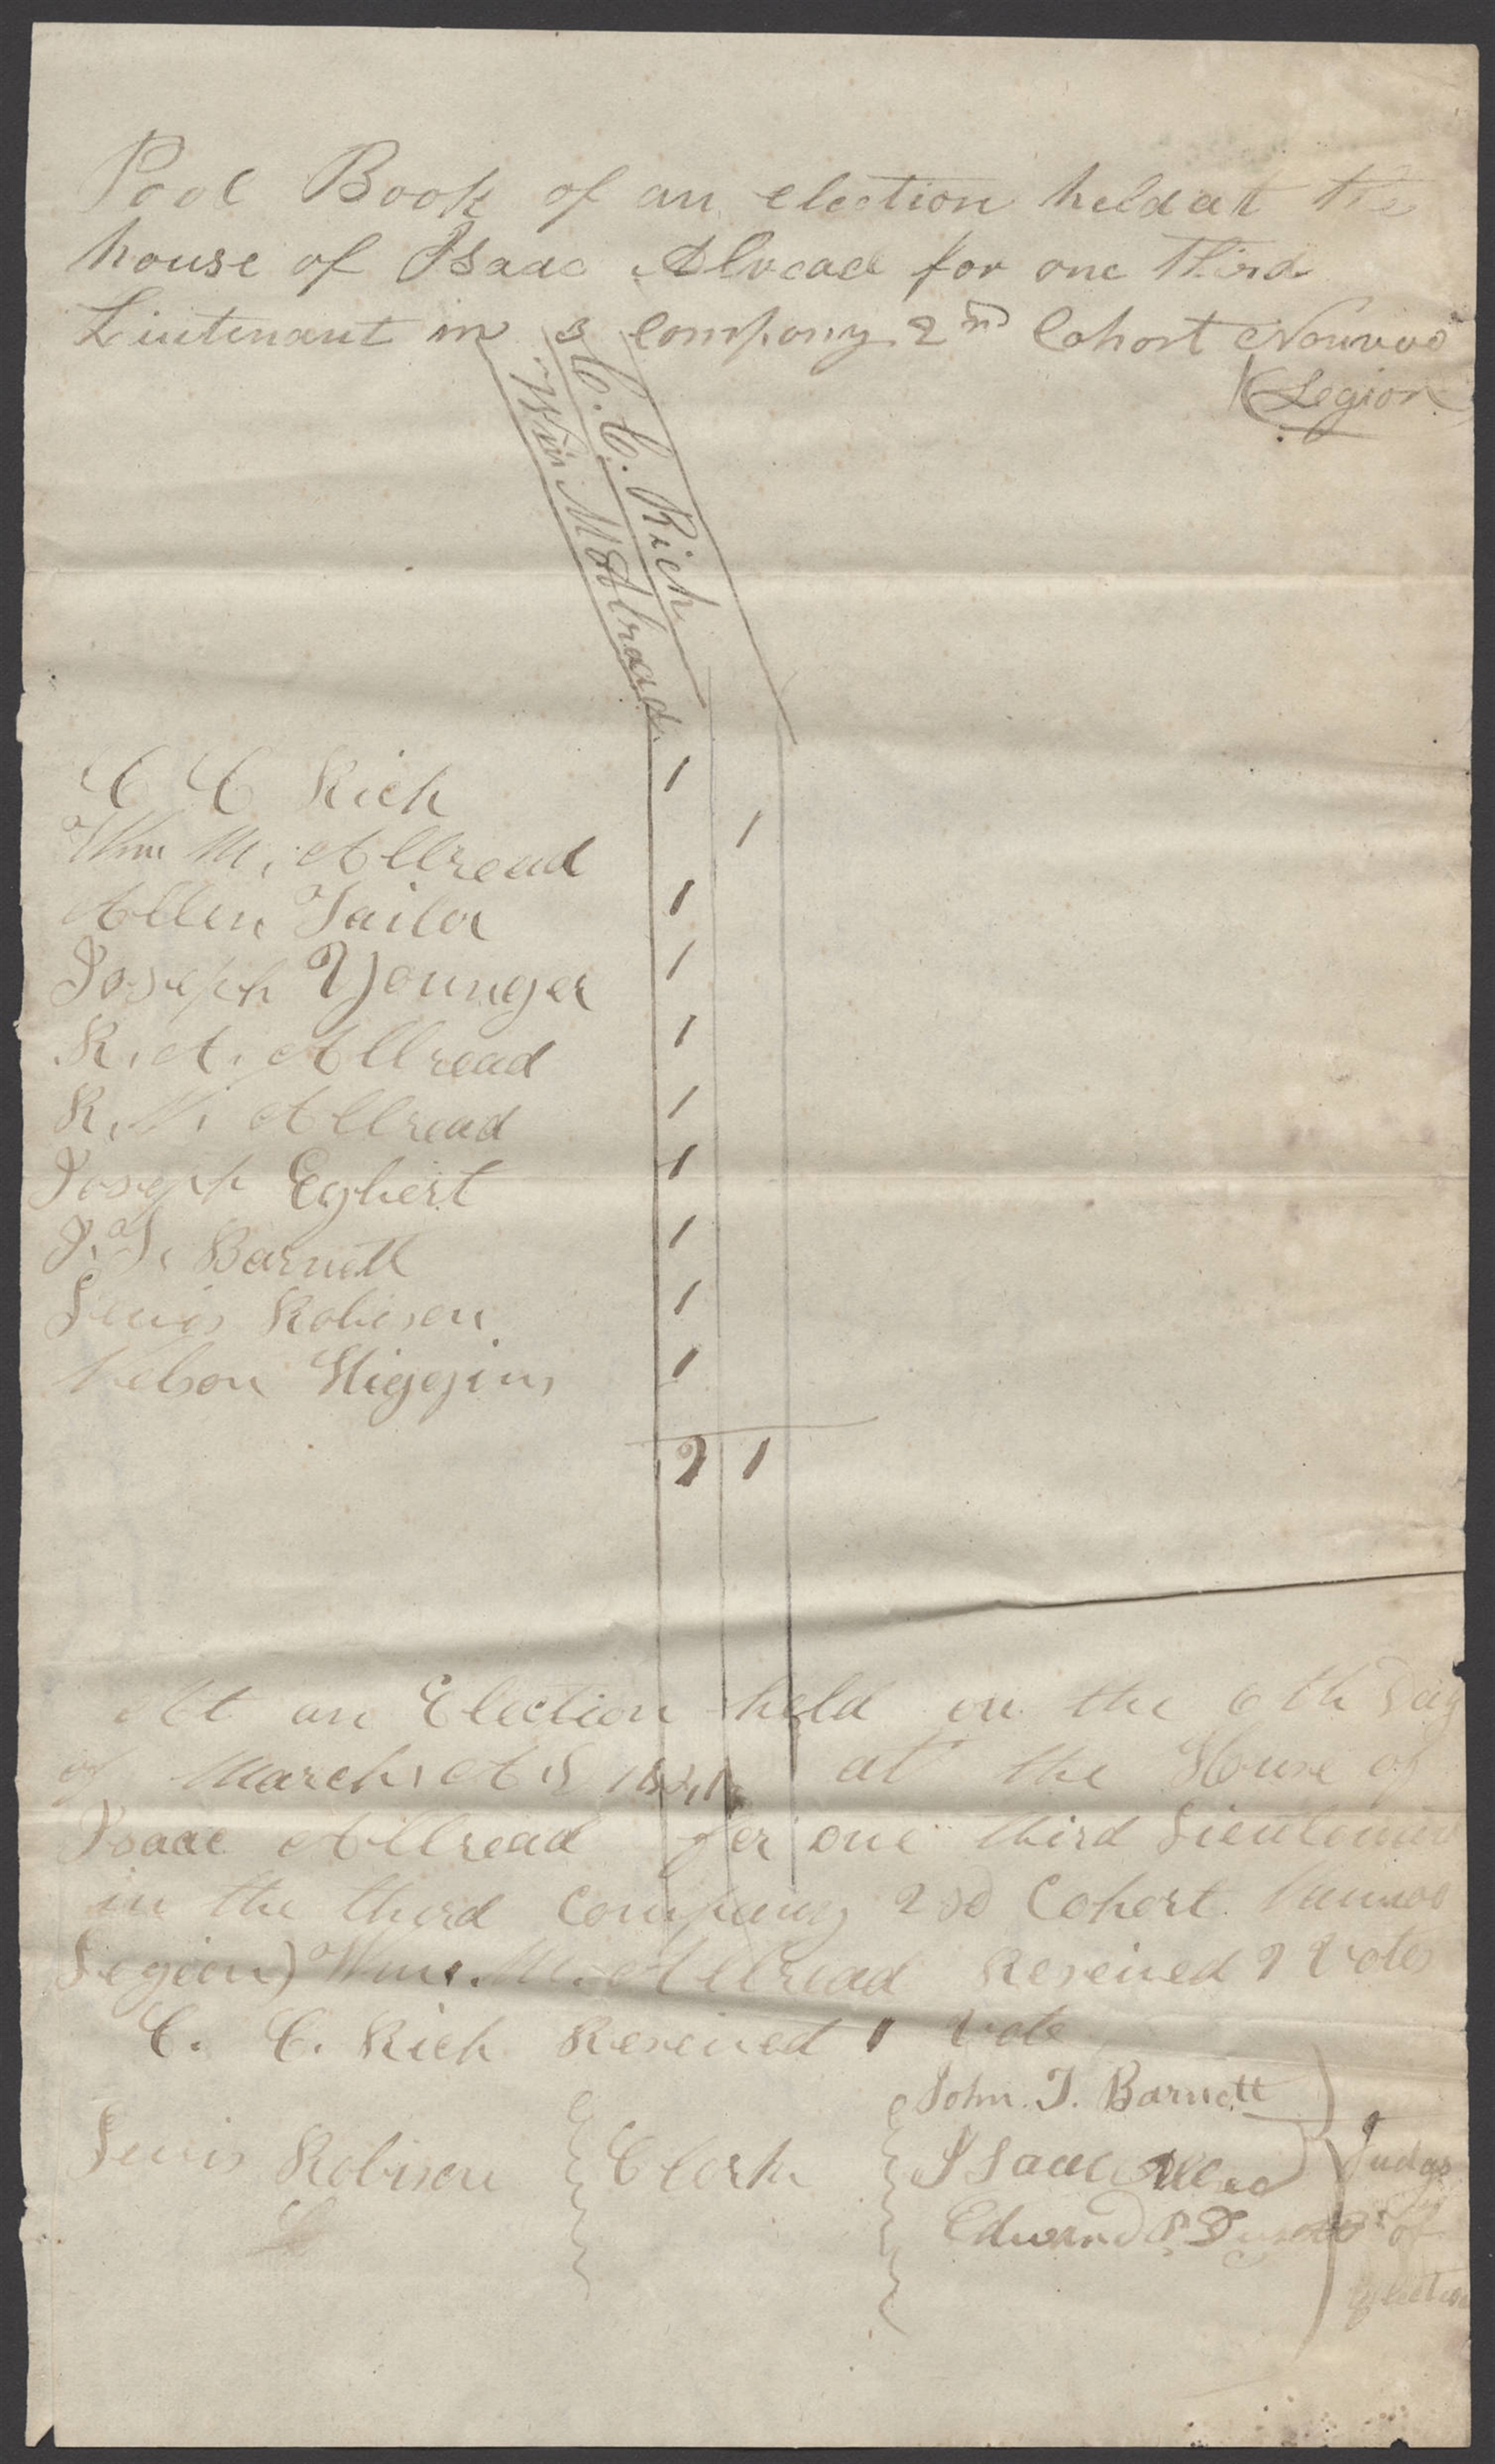 Pool Book of an election held at the
house of Isaac Alread for one third
Lieutenant in 3 Company 2nd Cohort Nauvoo
(Legion
C. C. Rich
Wm M Allread
C C Rich 1
Wm M. Allread 1
Allen Tailor 1
Joseph Younger 1
R. A. Allread 1
R. Allread 1
Joseph Egbert 1
J. T. Barnett 1
Lewis Robison 1
Nelson Higgins 1
9 1
At an Election held on the 6th Day
of March, A D at the House of
Isaac Allread for one third Lieutenant
in the third Company 2nd Cohort Nauvoo
Legion) Wm. M. Allread Reseived 9 Votes
C. C. Rich Reseived 1 Vote
John. T. Barnett
Lewis Robison Clerk Isaac Allred Judges
Edward P. of
Election